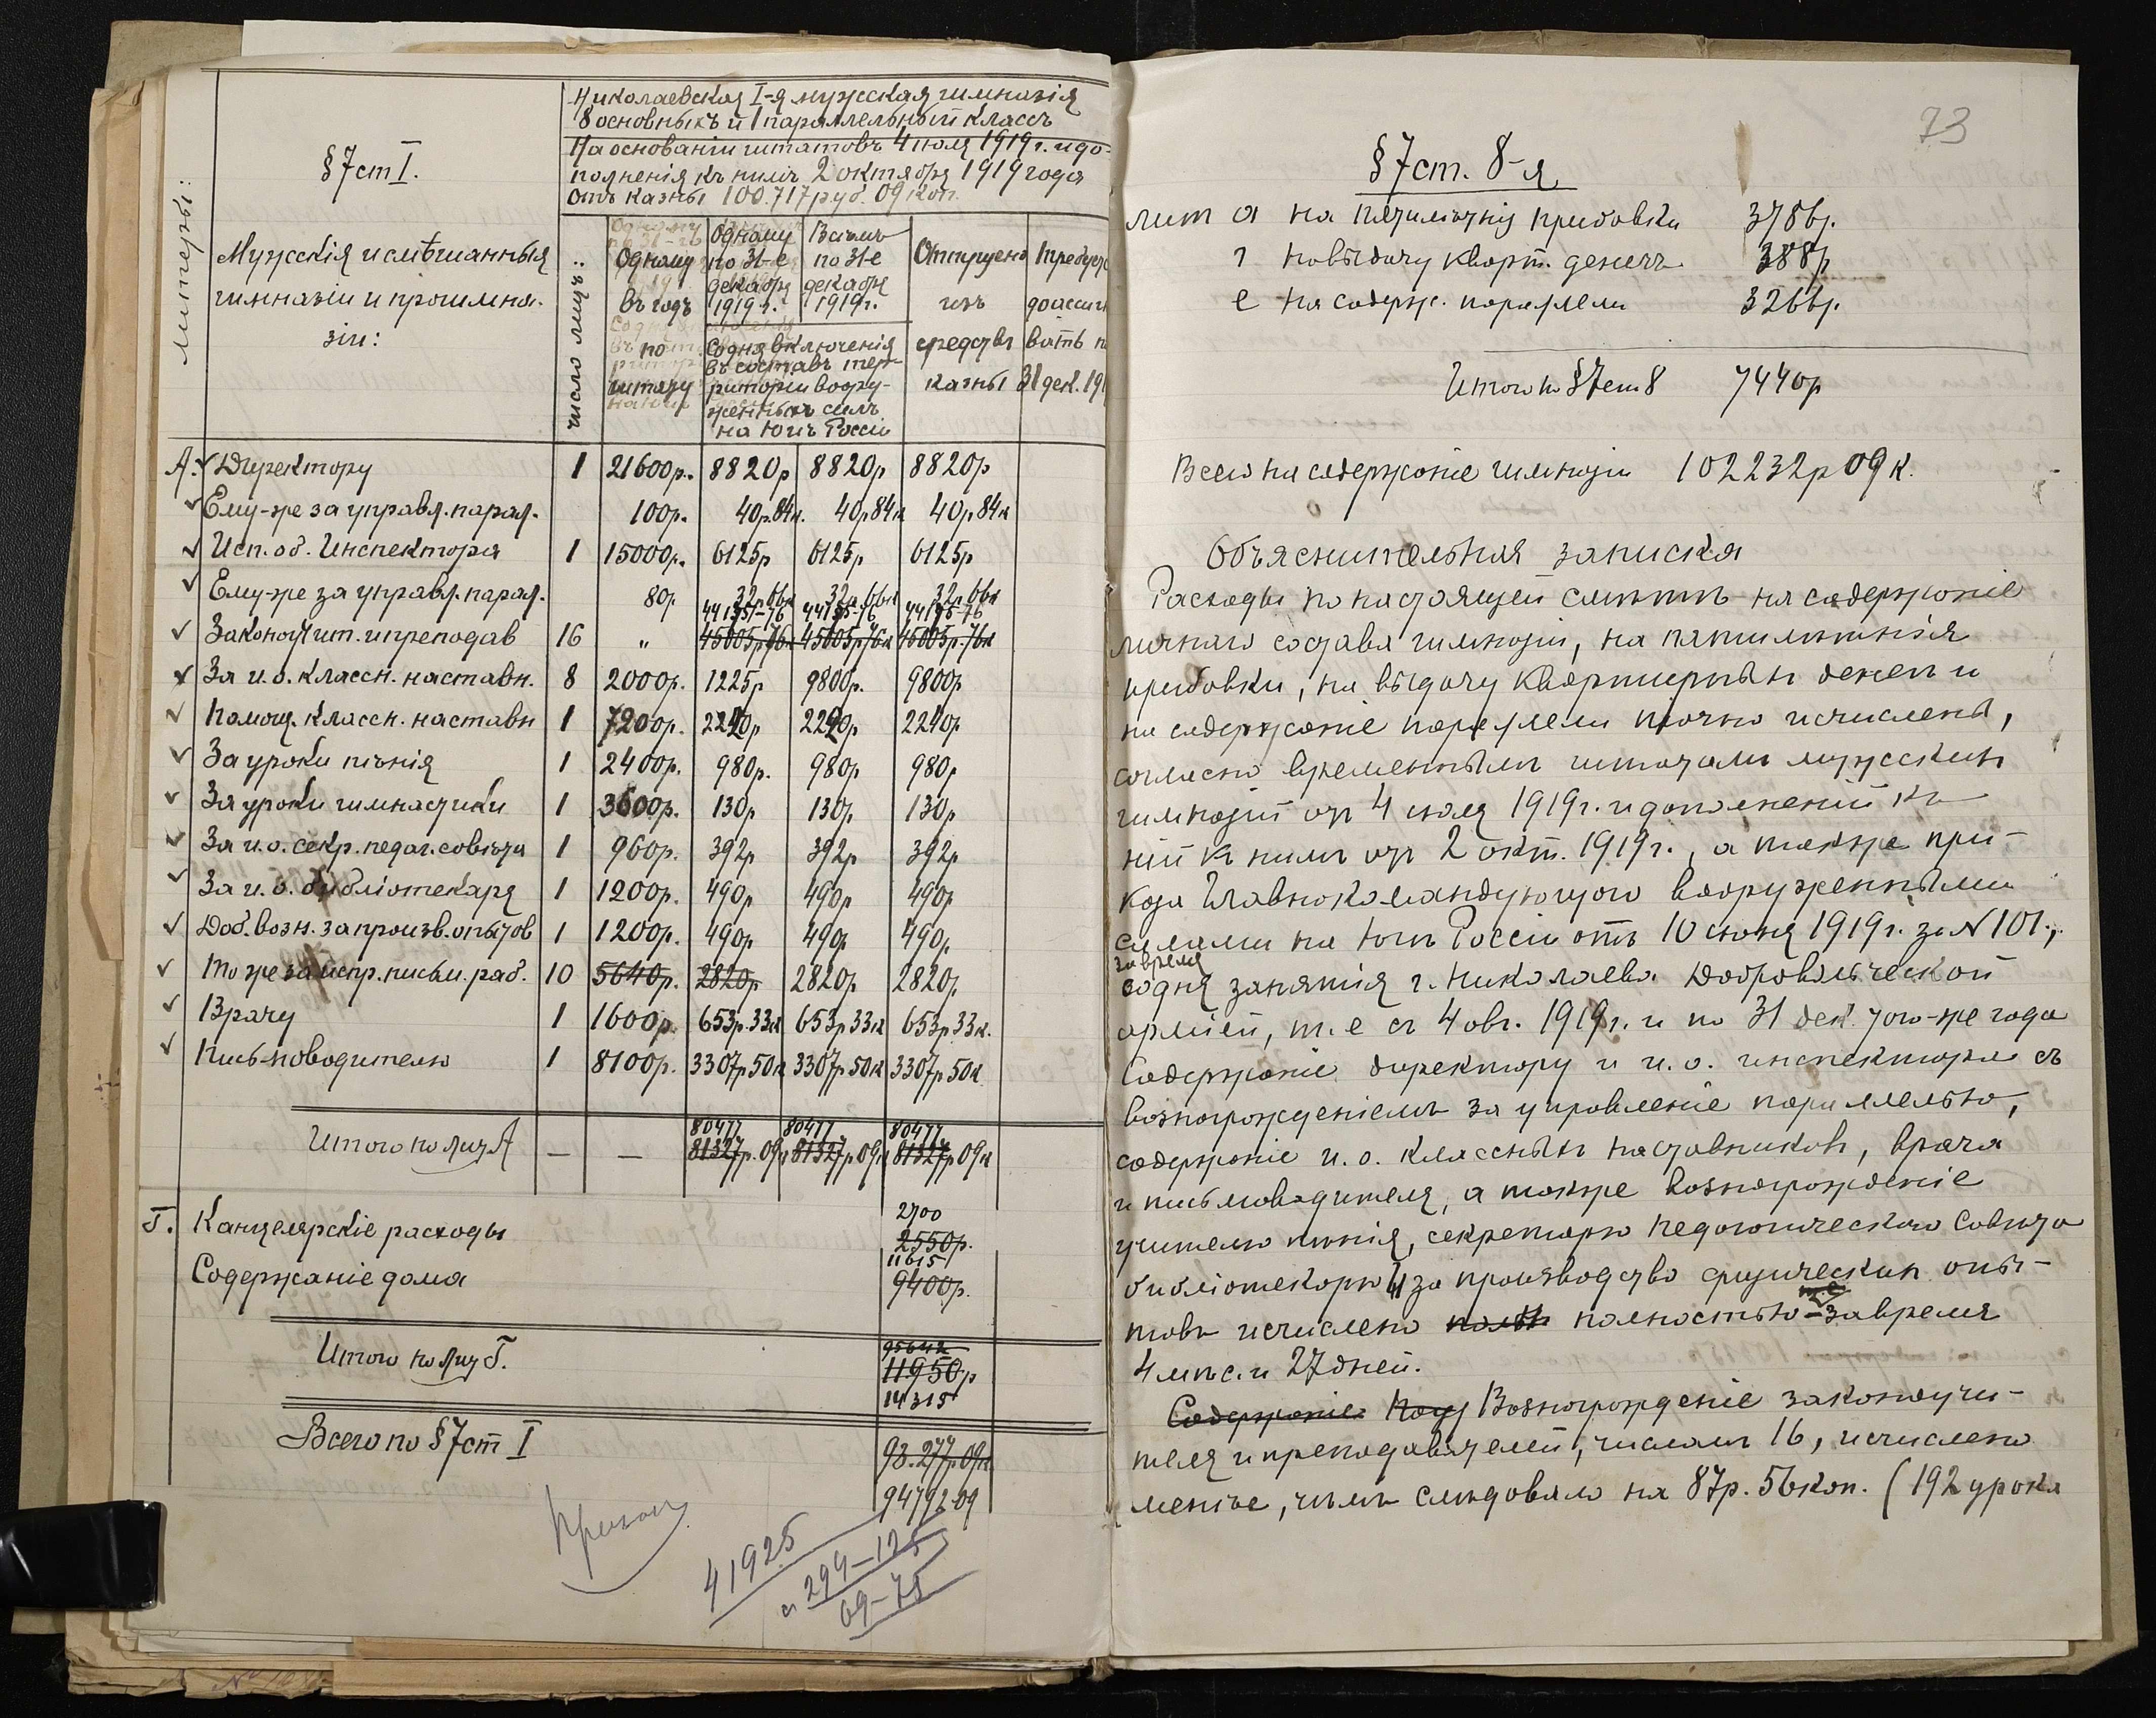 Николаевская I-я мужская гимназія
8 основныхъ и 1 параллельный классъ
На основаніи штатовъ 4 іюля 1919 г. и до-
полненія къ нимъ 2 октября 1919 года
отъ казны 100.717 руб. 09 коп.
литеры:
§ 7 ст I.
Мужскія и смѣшанныя
гимназіи и прогимна-
зіи:
число лицъ:
Одному
въ годъ
по
штату
Одному
по 31-е
декабря
1919 г.
Всѣмъ
по 31-е
декабря
1919 г.
Со дня включенія
въ составъ тер-
риторіи воору-
женныхъ силъ
на Югѣ Россіи
Отпущено
изъ
средствъ
казны
31 дек. 191
А. Директору 1 21600р. 8820р 8820р 8820р
Ему-же за управл. парал. 100р. 40р.84к. 40р84к 40р84к
Исп. об. Инспектора 1 15000р. 6125р 6125р 6125р
Ему-же за управл. парал. 80р 32р66к 32р66к 32р66к
44135-76 44135-76 44135-76
Законоучит. и преподав 16 „ 45005р76к 45005р76к 45005р.76к
За и. о. классн. наставн. 8 2000р. 1225р 9800р. 9800р
Помощ. классн. наставн 1 7200р. 2240р 2240р 2240р
За уроки пѣнія 1 2400р. 980р. 980р 980р
За уроки гимнастики 1 3600р. 130р 130р 130р
За и. о. секр. педаг. совѣта 1 960р. 392р 392р 392р
За и. о. библіотекаря 1 1200р. 490р 490р 490р
Доб. возн. за произв. опытов 1 1200р. 490р. 490р 490р
То же за испр. письм. раб. 10 5640р. 2820р 2820р 2820р
Врачу 1 1600р. 653р.33к 653р33к 653р33к.
Письмоводителю 1 8100р. 3307р50к 3307р50к 3307р50к
80477 80477 80477
Итого по лит А — — 81327р.09к 81327р09к 81327р09к
2700
Г. Канцелярскіе расходы 2550р.
11615
Содержаніе дома 9400р.
Итого по лит Г.
11950р
14315
Всего по § 7 ст I 93.277р.09к
94792-09
41925
294-125
09-75
73
§ 7 ст. 8-я
лит а на пятилѣтнія прибавки 3786р.
г на выдачу кварт. денегъ 388р
е на содерж. параллели 3266р.
Итого по § 7 ст 8 7440р
Всего на содержаніе гимназіи 102232р09к.
Объяснительная записка
Расходы по настоящей смѣтѣ на содержаніе
личнаго состава гимназіи, на пятилѣтнія
прибавки, на выдачу квартирныхъ денегъ и
на содержаніе параллели точно исчислены,
согласно временнымъ штатамъ мужскихъ
гимназій отъ 4 іюля 1919г. и дополненій къ
ній къ нимъ отъ 2 окт. 1919г., а также при-
каза Главнокомандующаго вооруженными
силами на Югѣ Россіи отъ 10 іюня 1919г. за N 101.,
за время
со дня занятія г. Николаева Добровольческой
арміей, т. е съ 4 авг. 1919г. и по 31 дек. того-же года
Содержаніе директору и и. о. инспектора съ
вознагражденіемъ за управленіе параллелью,
содержаніе и. о. классныхъ наставниковъ, врача
и письмоводителя, а также вознагражденіе
учителю пѣнія, секретарю Педагогическаго Совѣта
библіотекарю и за производство физическихъ опы-
т.е.
товъ исчислено полностью за время
4 мѣс. и 27 дней.
Содержаніе Вознагражденіе законоучи-
теля и преподавателей, числомъ 16, исчислено
менѣе, чѣмъ слѣдовало на 87р. 56 коп. (192 урока